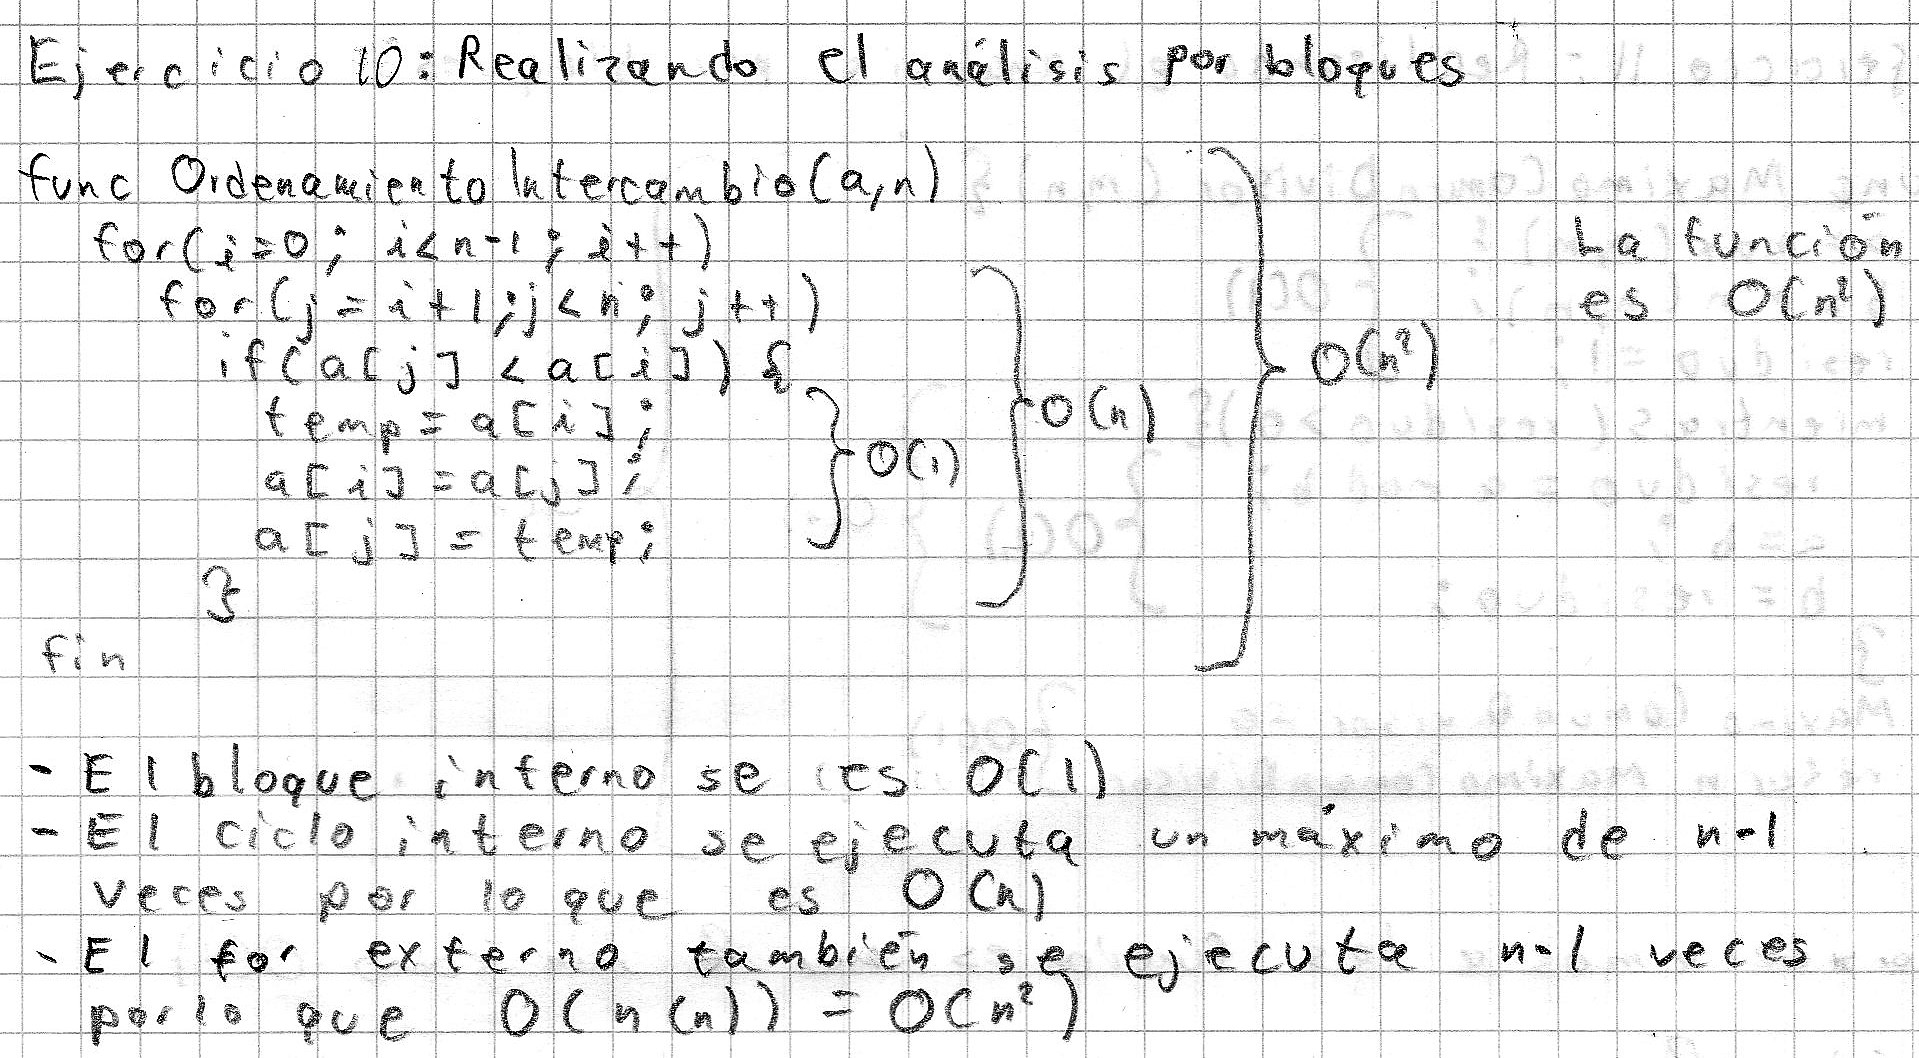 Ejercicio 10: Realizando el análisis por bloques
func OrdenamientoIntercambio(a,n)
for(i=0; i<n-1; i++)
for(j=i+1;j<n; j++)
if(a[j] < a[i]) {
temp = a[i];
a[i] = a[j];
a[j] = temp;
}
fin
O(1)
O(n)
O(n²)
La función
es O(n²)
- El bloque interno se es O(1)
- El ciclo interno se ejecuta un máximo de n-1
veces por lo que es O(n)
- El for externo también se ejecuta n-1 veces
por lo que O(n(n)) = O(n²)